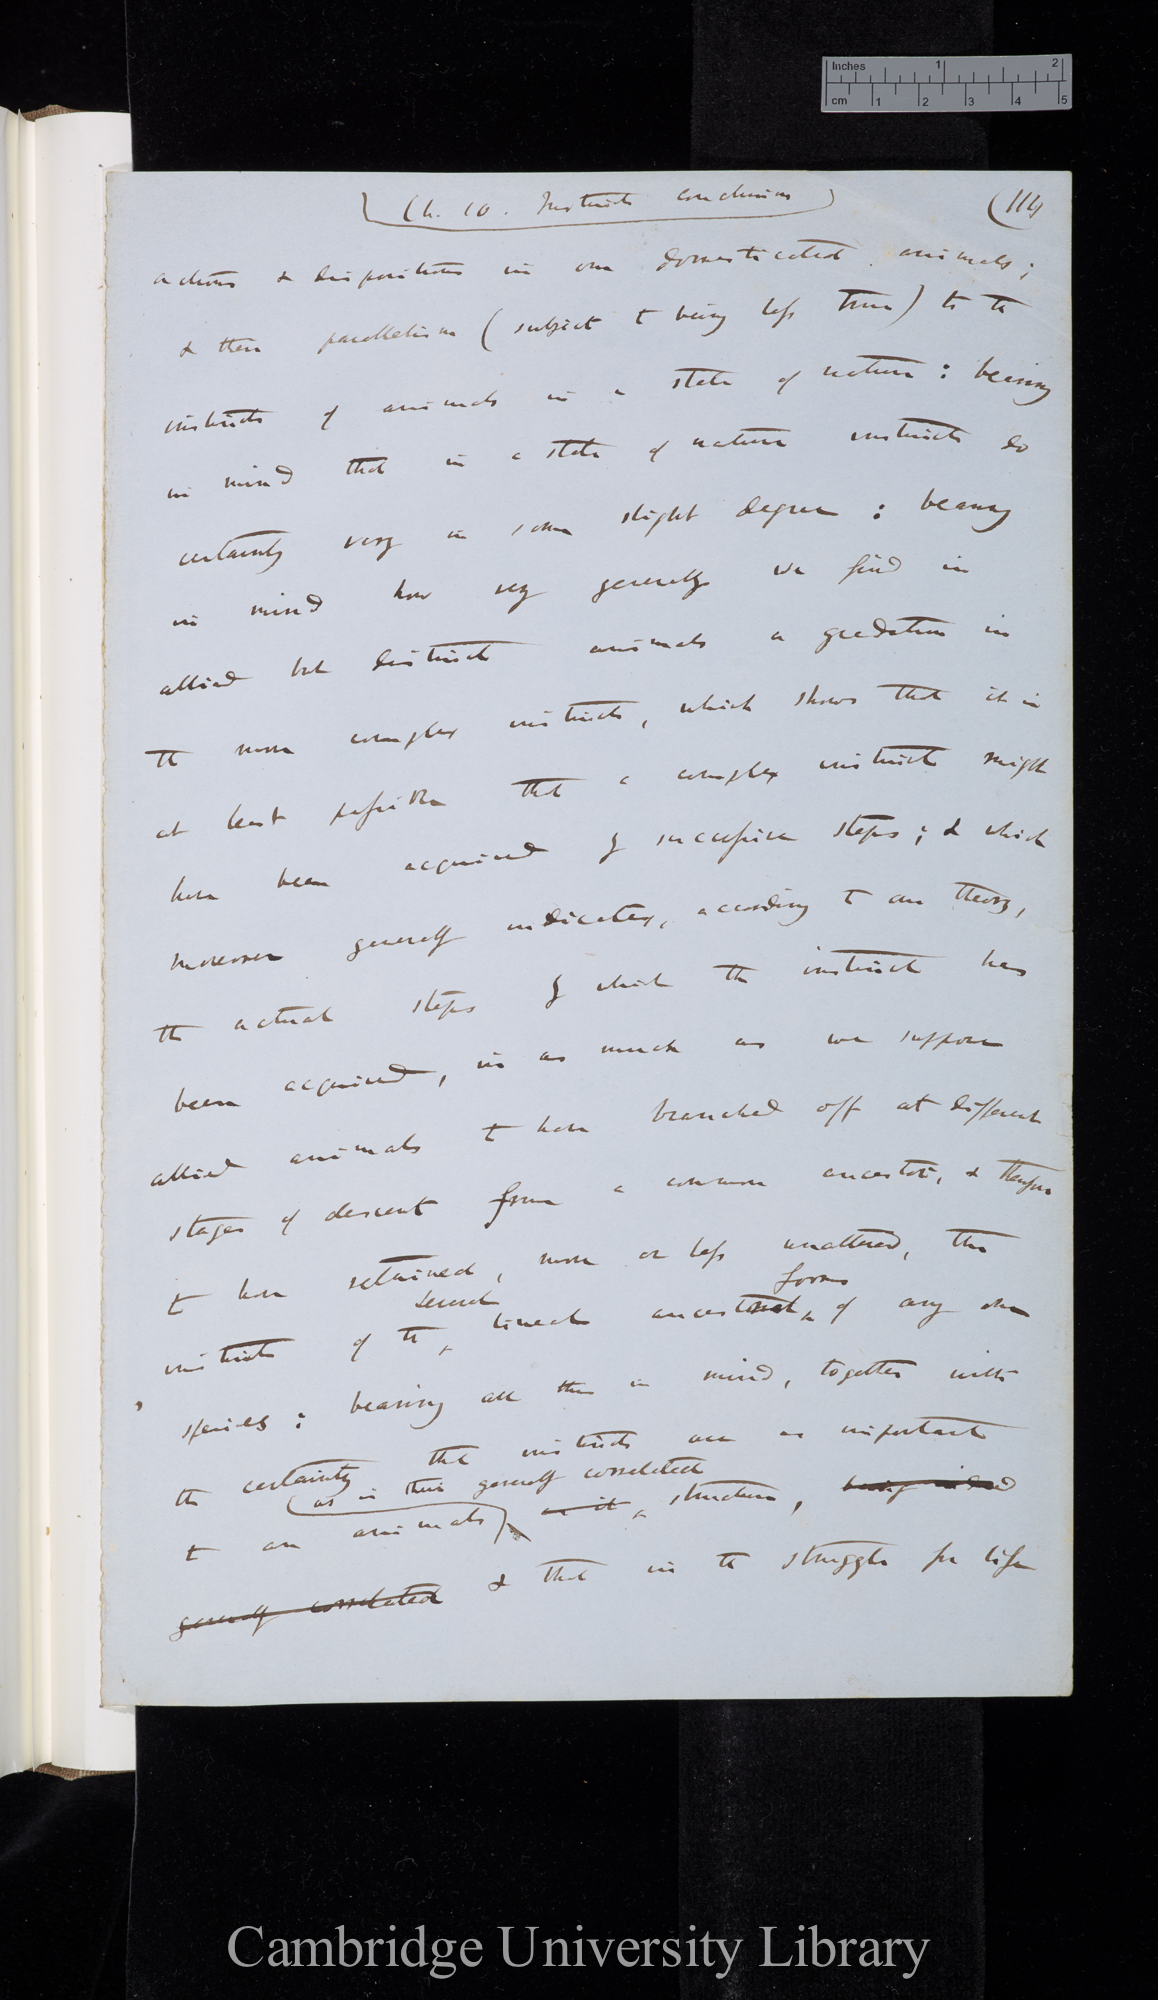 Inches 1 2
cm 1 2 3 4 5
Ch. 10. Instincts conclusion (114
actions & dispositions in our domesticated animals;
& their parallelism (subject to being less true) to the
instincts of animals in a state of nature: bearing
in mind that in a state of nature instincts do
certainly vary in some slight degree: bearing
in mind how very generally we find in
allied but distinct animals a gradation in
the more complex instincts, which shows that it is
at least possible that a complex instinct might
have been acquired by successive steps; & which
moreover generally indicates, according to our theory,
the actual steps by which the instinct has
been acquired, in as much as we suppose
allied animals to have branched off at different
stages of descent from a common ancestor, & therefore
to have retained, more or less unaltered, the
forms
several
instincts of the lineal ancestral of any one
species: bearing all this in mind, together with
the certainty that instincts are as important
as is their generally correlated
to an animal as it structure, being indeed
generally correlated & that in the struggle for life
Cambridge University Library